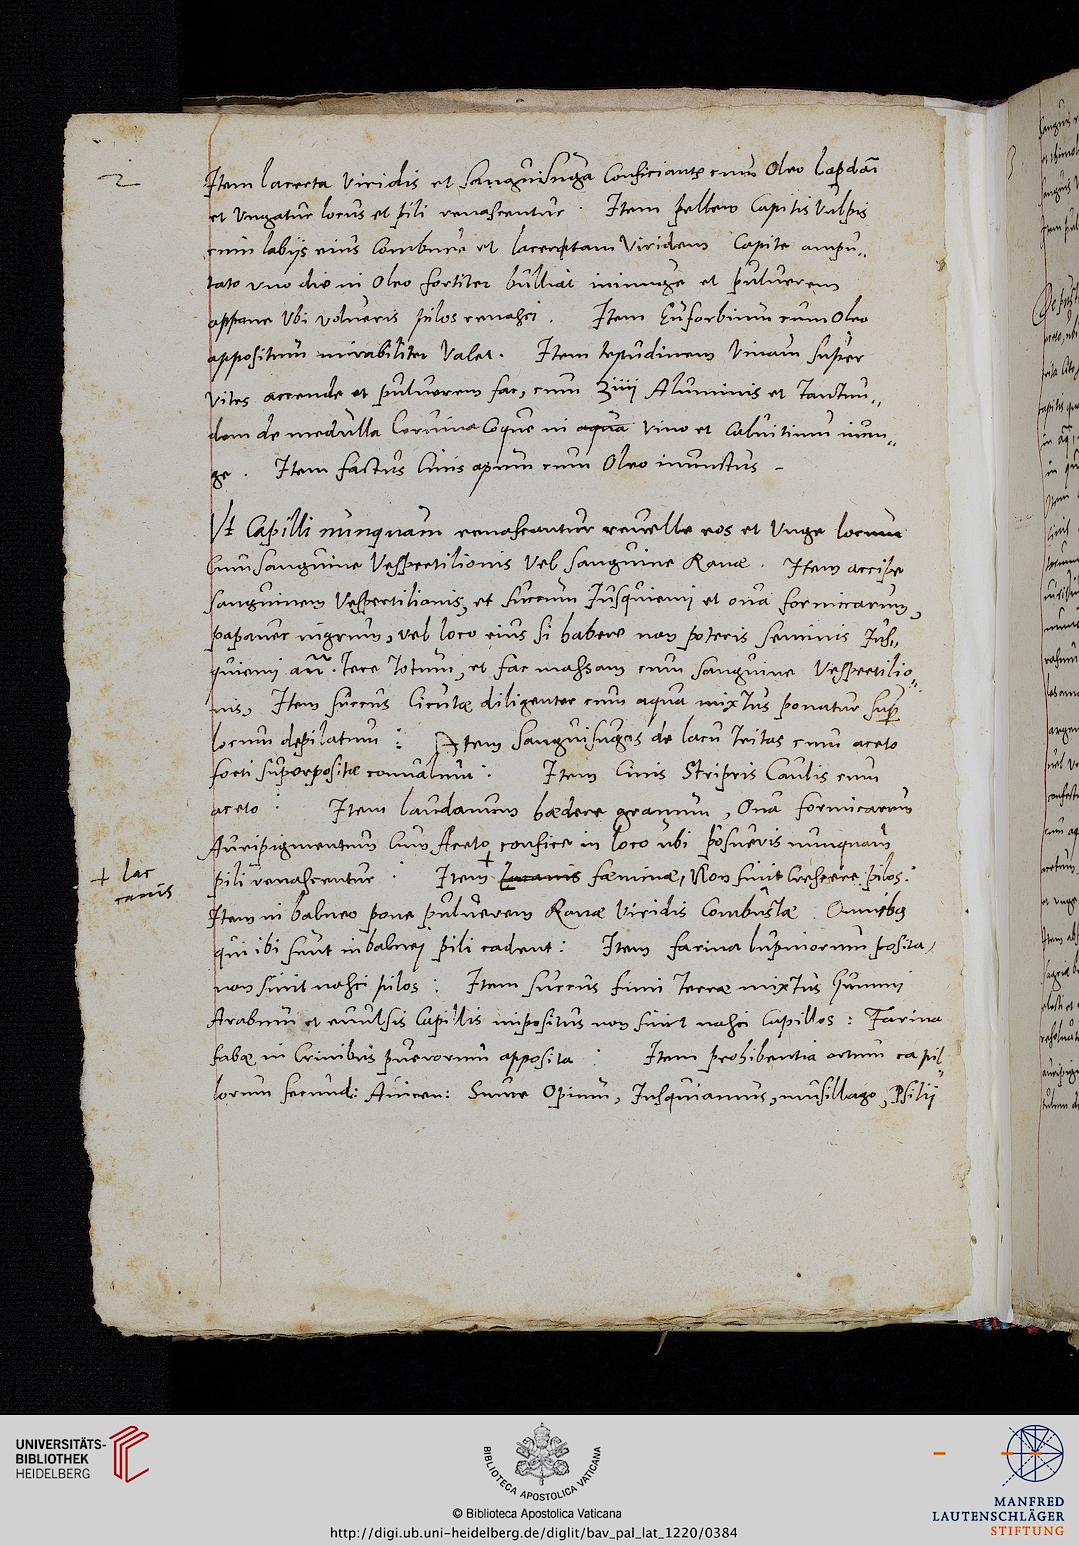 2
Item lacerta Viridis et Sanguisuga Conficiantr cum Oleo lapdaā
et Ungatur locus et pili renascentur . Item pellem Capitis Vulpis
cum labijs eius Combure et lacertam Viridem Capite ampu„
tato uno die in Oleo fortiter bulliat inunge et pulverem
appone Ubi volueris pilos renasci . Item Euforbium cum Oleo
appositum mirabiliter Valet . Item testudinem Vivam super
Vites accende et pulverem fac, cum ʒiiij Aluminis et Tantun„
dem de medulla Cervina Coque in aqua Vino et Calvitium inun„
ge . Item factus Cinis apum cum Oleo inunctus -
Ut Capilli nunquam renascantur revelle eos et Unge locum
Cum sanguine Vespertilionis Vel sanguine Ranæ . Item accipe
sanguinem Vespertilionis, et succum Jusquiemi et ova formicarum,
papaver nigrum, vel loco eius si habere non poteris Seminis Jus„
quiemi añ . Tere Totum, et fac massam cum sanguine Vespertilio„
nis, Item succus Cicutæ diligenter cum aqua mixtus ponatur sup
locum depilatum : Item Sanguisugas de lacu Tritas cum aceto
forti superpositæ : Item Cinis Stripis Caulis cum
aceto : Item laudanum hædere gramum, Ova formicarum
Auripigmentum Cum Aceto confice in loco ubi posueris nunquam
+ lac
canis
pili renascentur : Item + Lacanis fæminæ, Non sinit Crescere pilos :
Item in balneo pone pulverem Ranæ Viridis Combustæ . Omnibq
qui ibi sunt in balnei pili cadent : Item farina lupinorum posita,
non sinit nasci pilos : Item succus fimi Terræ mixtus Gummi
Arabum et evulsis Capillis impositus non sinit nasci Capillos : Farina
fabæ in Crinibus puerorum apposita : Item prohibentia ortum capil„
lorum secund: Avicen: Sunt Opium, Jusquiamus, musillago, Psilij
3
UNIVERSITÄTS-
BIBLIOTHEK
HEIDELBERG
BIBLIOTECA APOSTOLICA VATICANA
© Biblioteca Apostolica Vaticana
http://digi.ub.uni-heidelberg.de/diglit/bav_pal_lat_1220/0384
MANFRED
LAUTENSCHLÄGER
STIFTUNG